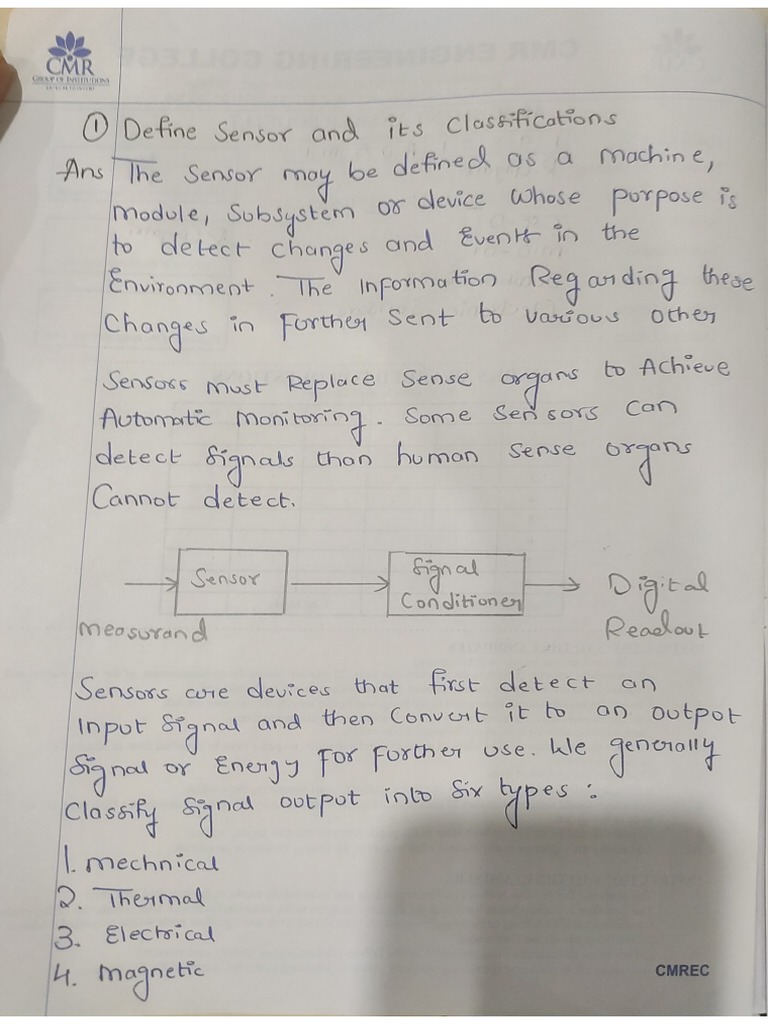 CMR
GROUP OF INSTITUTIONS
① Define Sensor and its Classifications
Ans The Sensor may be defined as a machine,
module, Subsystem or device whose porpose is
to detect changes and Events in the
Environment. The Information Regarding these
Changes in Forther Sent to various other
Sensors must Replace Sense organs to Achieve
Automatic monitoring. Some Sensors can
detect Signals than human sense organs
Cannot detect.
Sensor
Signal
Conditioner
Digital
Readout
measurand
Sensors are devices that first detect an
Input Signal and then Convert it to an output
Signal or Energy For Forther use. We generally
Classify Signal output into Six types :
1. mechnical
2. Thermal
3. Electrical
4. magnetic
CMREC